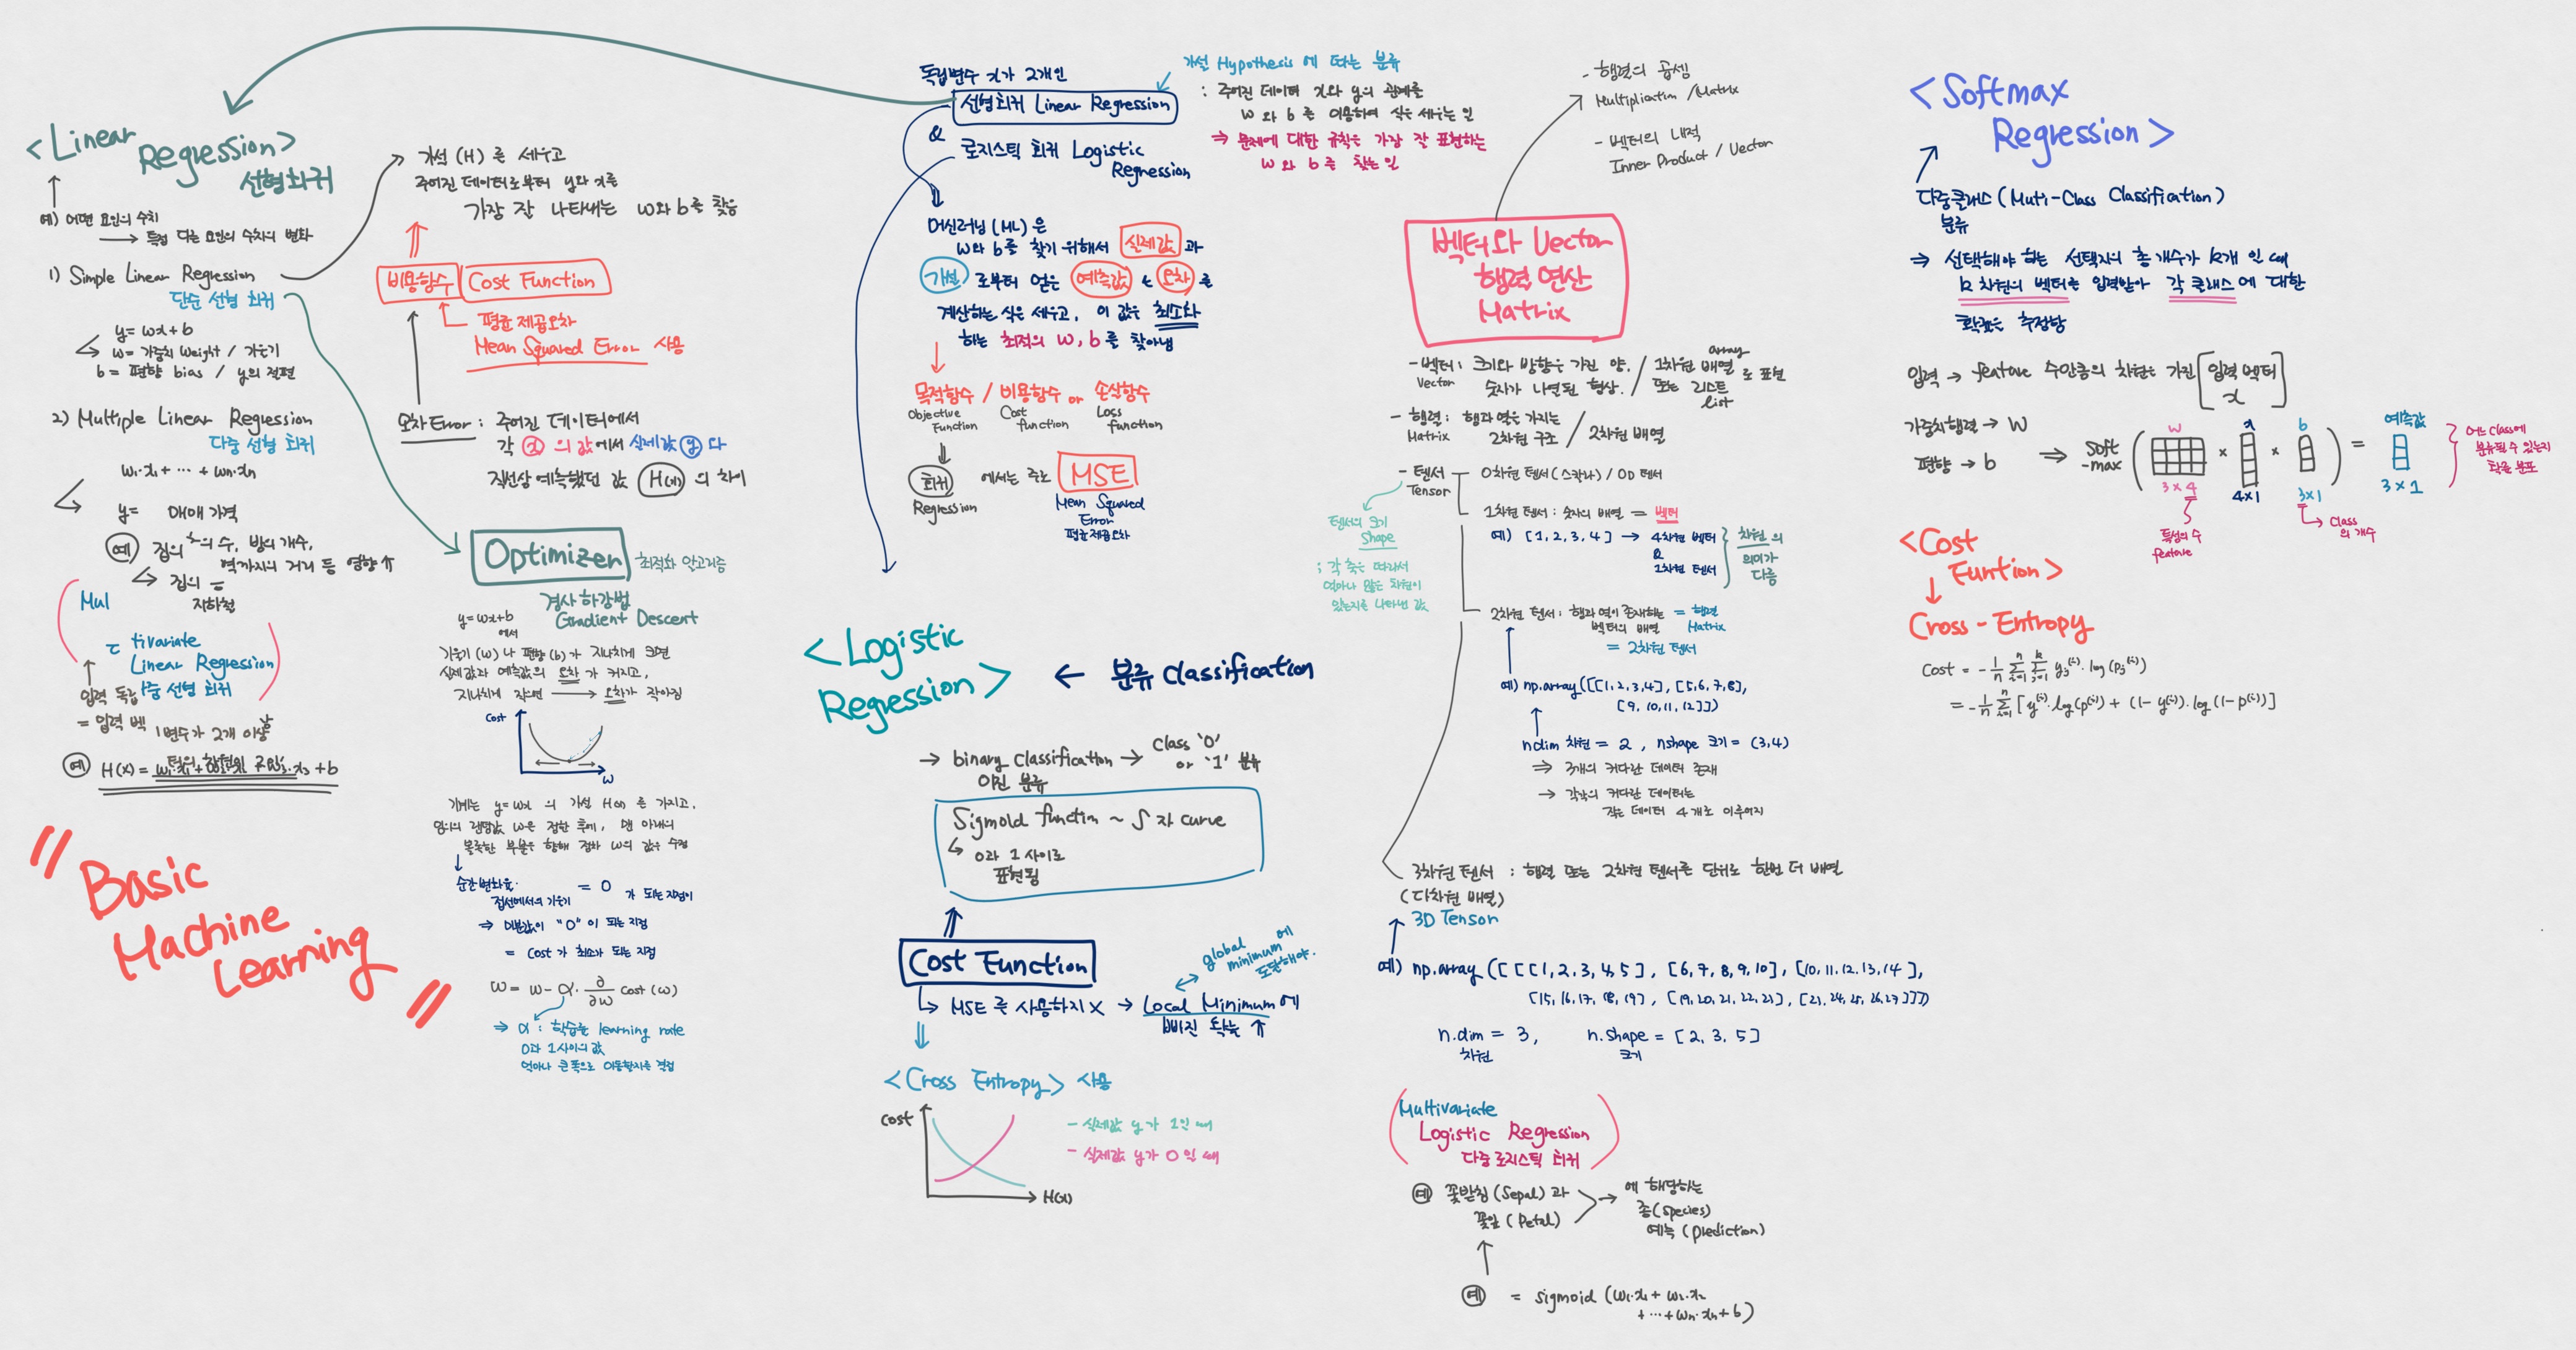 <Linear
Regression>
선형회귀
예) 어떤 요인의 수치
→ 특정 다른 요인의 수치의 변화
1) Simple Linear Regression
단순 선형 회귀
y = wx + b
w = 가중치 Weight / 기울기
b = 편향 bias / y의 절편
2) Multiple Linear Regression
다중 선형 회귀
w₁·x₁ + ··· + wn·xn
y = 매매 가격
예 집의 층의 수, 방의 개수,
역까지의 거리 등 영향 ↑
집의
지하철
Mul
tivariate
Linear Regression
중 선형 회귀
입력 독립
= 입력 벡
변수가 2개 이상
예 H(x) =
+ b
"Basic
Machine
Learning"
가설 (H) 를 세우고
주어진 데이터로부터 y와 x를
가장 잘 나타내는 w와 b를 찾음
비용함수 Cost Function
평균 제곱오차
Mean Squared Error 사용
오차 Error : 주어진 데이터에서
각 x 의 값에서 실제값 y 와
직선상 예측했던 값 H(x) 의 차이
Optimizer 최적화 알고리즘
경사 하강법
Gradient Descent
y = wx + b
에서
기울기 (w) 나 편향 (b) 가 지나치게 크면
실제값과 예측값의 오차 가 커지고,
지나치게 작으면 → 오차가 작아짐
Cost
w
기계는 y = wx 의 가설 H(x) 를 가지고,
임의의 랜덤값 w을 정한 후에, 맨 아래의
볼록한 부분을 향해 점차 w의 값을 수정
순간변화율.
접선에서의 기울기 = 0 가 되는 지점이
⇒ 미분값이 "0" 이 되는 지점
= Cost 가 최소가 되는 지점
w = w - α · ∂/∂w cost (w)
⇒ α : 학습률 learning rate
0과 1 사이의 값
얼마나 큰 폭으로 이동할지를 결정
독립변수 x가 2개인
선형회귀 Linear Regression
&
로지스틱 회귀 Logistic
Regression
가설 Hypothesis 에 따른 분류
: 주어진 데이터 x와 y의 관계를
w 와 b 를 이용하여 식을 세우는 일
⇒ 문제에 대한 규칙을 가장 잘 표현하는
w 와 b 를 찾는 일
머신러닝 (ML) 은
w와 b를 찾기 위해서 실제값 과
가설 로부터 얻은 예측값 의 오차 를
계산하는 식을 세우고, 이 값을 최소화
하는 최적의 w, b 를 찾아냄
목적함수 / 비용함수 or 손실함수
Objective Function
Cost function
Loss function
회귀 에서는 주로 MSE
Regression
Mean Squared
Error
평균제곱오차
<Logistic
Regression> ← 분류 Classification
→ binary Classification → Class '0'
or '1' 분류
이진 분류
Sigmoid function ~ S 자 curve
0과 1 사이로
표현됨
Cost Function
global
minimum 에
도달해야.
MSE 를 사용하지 X → Local Minimum에
빠질 확률 ↑
<Cross Entropy> 사용
Cost
H(x)
- 실제값 y가 1일 때
- 실제값 y가 0일 때
- 행렬의 곱셈
Multiplication / Matrix
- 벡터의 내적
Inner Product / Vector
벡터와 Vector
행렬 연산
Matrix
- 벡터 : 크기와 방향을 가진 양. / 1차원 배열 array
Vector 숫자가 나열된 형상. / 또는 리스트 로 표현
list
- 행렬 : 행과 열을 가지는
Matrix 2차원 구조 / 2차원 배열
- 텐서 0차원 텐서 (스칼라) / 0D 텐서
Tensor
1차원 텐서 : 숫자의 배열 = 벡터
텐서의 크기
Shape
; 각 축을 따라서
얼마나 많은 차원이
있는지를 나타낸 값
예) [1, 2, 3, 4] → 4차원 벡터
&
1차원 텐서
차원 의
의미가
다름
2차원 텐서 : 행과 열이 존재하는 = 행렬
벡터의 배열 Matrix
= 2차원 텐서
예) np.array([[1,2,3,4], [5,6,7,8],
[9,10,11,12]])
ndim 차원 = 2, nshape 크기 = (3,4)
⇒ 3개의 커다란 데이터 존재
→ 각각의 커다란 데이터는
작은 데이터 4개로 이루어지
3차원 텐서 : 행렬 또는 2차원 텐서를 단위로 한번 더 배열
(다차원 배열)
3D Tensor
예) np.array ([[[1,2,3,4,5], [6,7,8,9,10], [10,11,12,13,14],
[15,16,17,18,19], [19,20,21,22,23], [23,24,25,26,27]]])
n.dim = 3, n.shape = [2, 3, 5]
차원 크기
Multivariate
Logistic Regression
다중 로지스틱 회귀
예 꽃받침 (Sepal) 과
꽃잎 (Petal)
→ 에 해당하는
종 (species)
예측 (prediction)
예 = sigmoid (w₁·x₁ + w₂·x₂
+ ··· + wn·xn + b)
<Softmax
Regression>
다중클래스 (Muti-Class Classification)
분류
⇒ 선택해야 하는 선택지의 총 개수가 k개 일 때
k 차원의 벡터를 입력받아 각 클래스 에 대한
확률을 추정함
입력 → feature 수만큼의 차원을 가진 [입력 벡터
x]
가중치행렬 → W
편향 → b
⇒ Soft
-max ( w × x × b ) = 예측값
3×4 4×1 3×1 3×1
특성의 수
feature
class
의 개수
어느 class에
분류될 수 있는지
확률 분포
<Cost
Funtion>
Cross - Entropy
Cost = - 1/n Σ Σ yj⁽ⁱ⁾ · log (pj⁽ⁱ⁾)
= - 1/n Σ [y⁽ⁱ⁾ · log(p⁽ⁱ⁾) + (1 - y⁽ⁱ⁾) · log (1 - p⁽ⁱ⁾)]